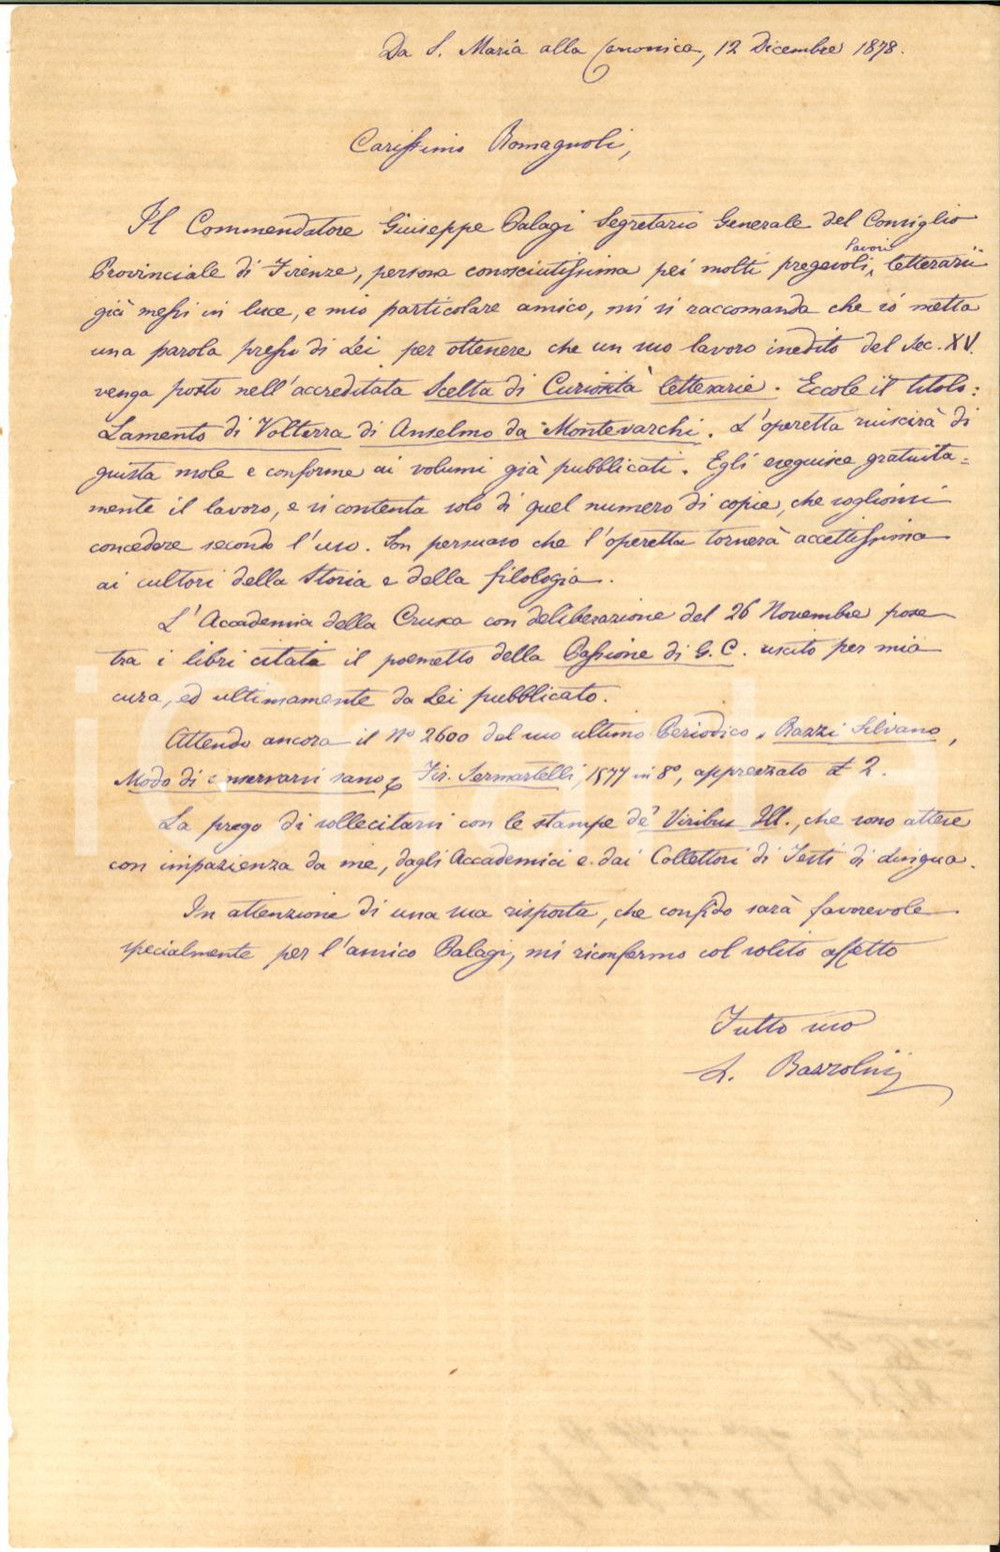 Da S. Maria alla Canonica, 12 Dicembre 1878.
Carissimo Romagnoli,
Il Commendatore Giuseppe Palagi Segretario Generale del Consiglio
Provinciale di Firenze, persona conosciutissima pei molti pregevoli lavori letterarii
già messi in luce, e mio particolare amico, mi si raccomanda che io metta
una parola presso di Lei per ottenere che un suo lavoro inedito del Sec. XV.
venga posto nell'accreditata Scelta di Curiosità letterarie. Eccole il titolo:
Lamento di Volterra di Anselmo da Montevarchi. L'operetta riuscirà di
giusta mole e conforme ai volumi già pubblicati. Egli eseguisce gratuita=
mente il lavoro, e si contenta solo di quel numero di copie, che soglionsi
concedere secondo l'uso. Son persuaso che l'operetta tornerà accettissima
ai cultori della Storia e della filologia.
L'Accademia della Crusca con deliberazione del 26 Novembre pose
tra i libri citati il poemetto della Passione di G. C. uscito per mia
cura, ed ultimamente da Lei pubblicato.
Attendo ancora il No 2600 del suo ultimo Periodico, Razzi Silvano,
Modo di conservarsi sano, Fir. Sermartelli, 1577 in 8o, apprezzato £ 2.
La prego di sollecitarsi con le stampe de' Viribus Ill., che sono attese
con impazienza da me, dagli Accademici e dai Collettori di Testi di Lingua.
In attenzione di una sua risposta, che confido sarà favorevole
specialmente per l'amico Palagi, mi riconfermo col solito affetto
Tutto suo
L. Razzolini